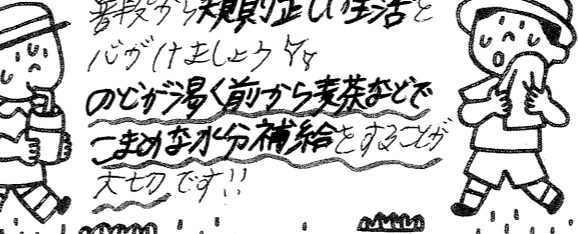 普段から規則正しい生活を
心がけましょう
のどが渇く前から麦茶などで
こまめな水分補給をすることが
大切です!!